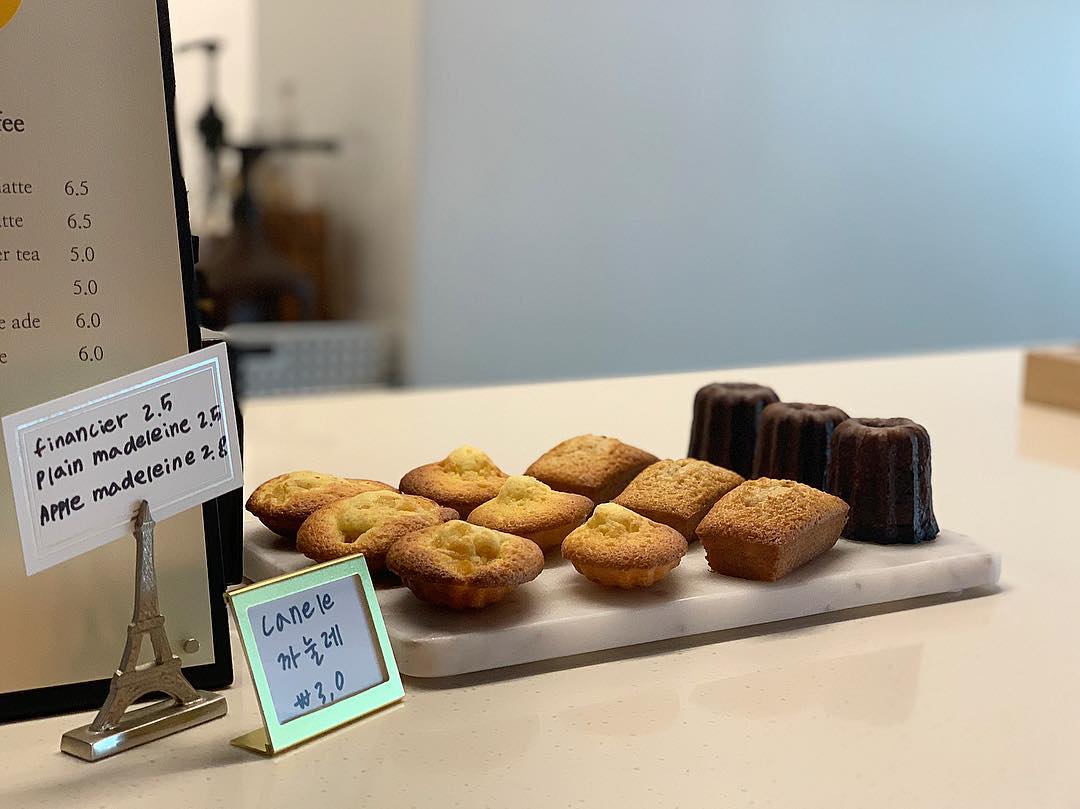 6.5
6.5
er tea 5.0
5.0
ade 6.0
6.0
financier 2.5
plain madeleine 2.5
Apple madeleine 2.8
Canele
까눌레
₩3,0